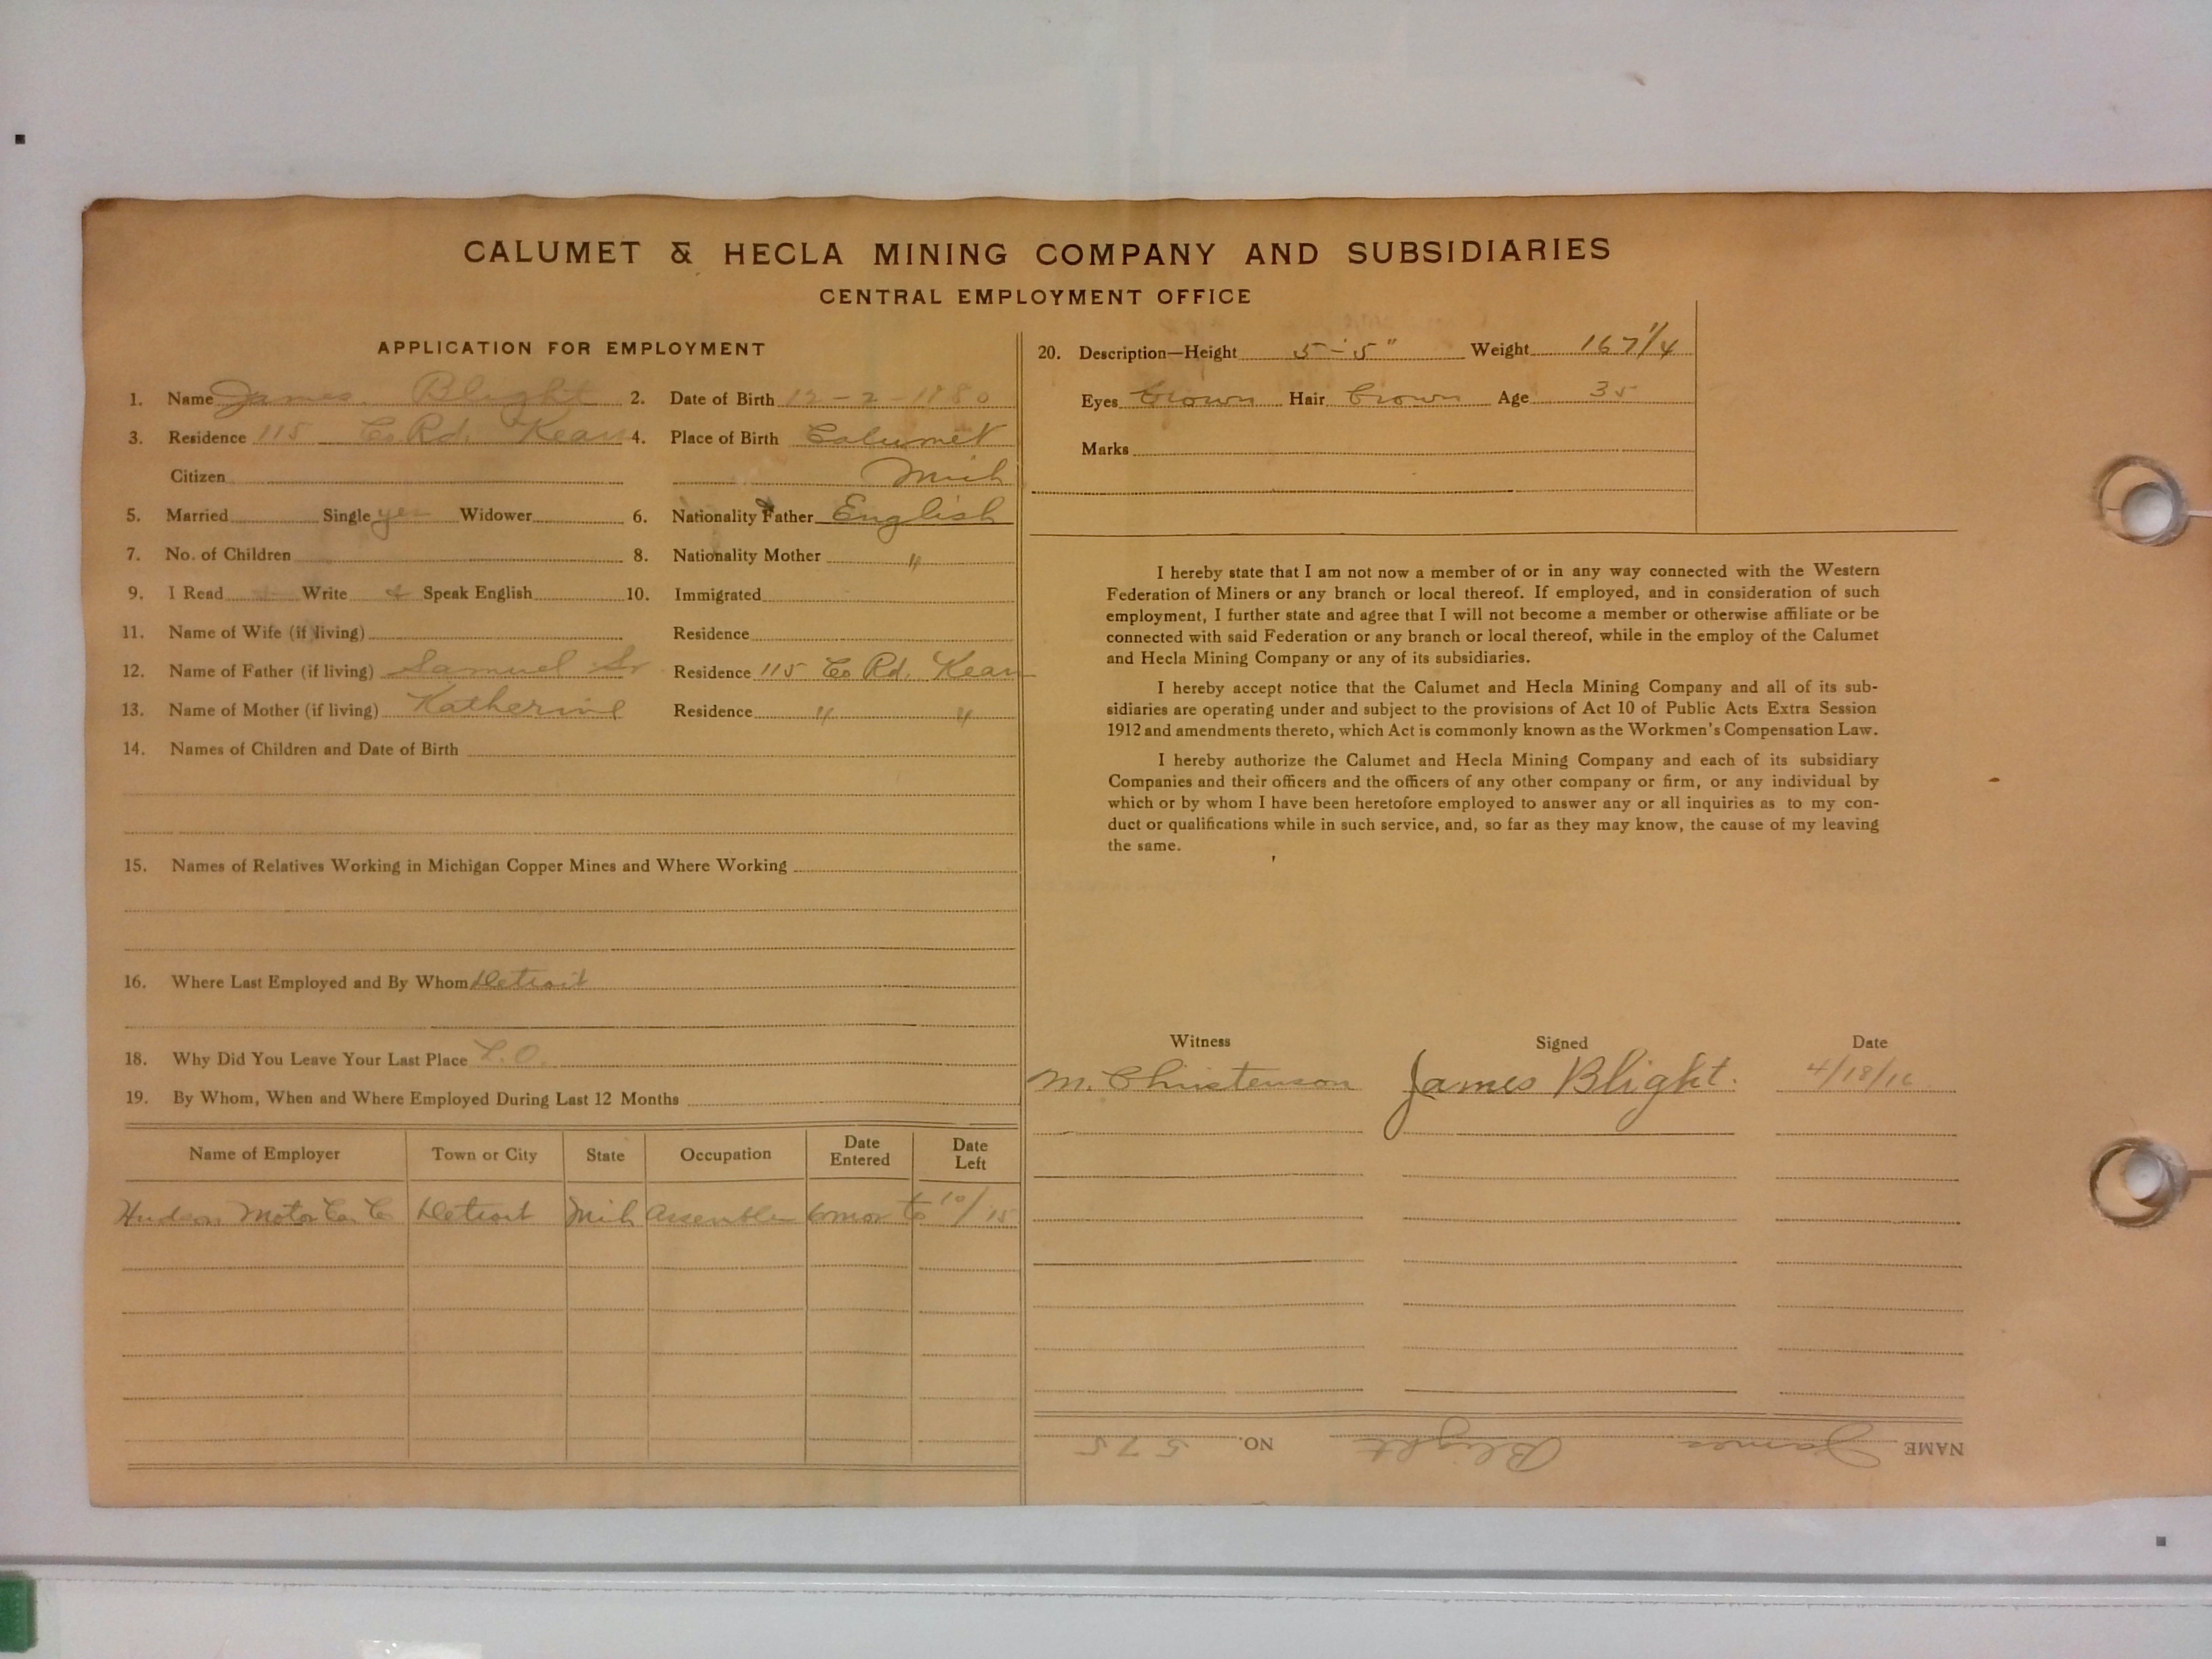 CALUMET & HECLA MINING COMPANY AND SUBSIDIARIES
CENTRAL EMPLOYMENT OFFICE
APPLICATION FOR EMPLOYMENT
1. Name James Blight 2. Date of Birth 12-2-1880
3. Residence 115 Co Rd. Kear 4. Place of Birth Calumet
Citizen Mich
5. Married Single yes Widower 6. Nationality Father English
7. No. of Children 8. Nationality Mother "
9. I Read Write Speak English 10. Immigrated
11. Name of Wife (if living) Residence
12. Name of Father (if living) Samuel Sr Residence 115 Co Rd. Kear
13. Name of Mother (if living) Katherine Residence " "
14. Names of Children and Date of Birth
15. Names of Relatives Working in Michigan Copper Mines and Where Working
16. Where Last Employed and By Whom Detroit
18. Why Did You Leave Your Last Place L.O.
19. By Whom, When and Where Employed During Last 12 Months
Name of Employer Town or City State Occupation Date Entered Date Left
Hudson Motor Car Co Detroit Mich Assembler 6 mos to 10/15
20. Description—Height 5-5" Weight 167 1/4
Eyes Brown Hair Brown Age 35
Marks
I hereby state that I am not now a member of or in any way connected with the Western
Federation of Miners or any branch or local thereof. If employed, and in consideration of such
employment, I further state and agree that I will not become a member or otherwise affiliate or be
connected with said Federation or any branch or local thereof, while in the employ of the Calumet
and Hecla Mining Company or any of its subsidiaries.
I hereby accept notice that the Calumet and Hecla Mining Company and all of its sub-
sidiaries are operating under and subject to the provisions of Act 10 of Public Acts Extra Session
1912 and amendments thereto, which Act is commonly known as the Workmen's Compensation Law.
I hereby authorize the Calumet and Hecla Mining Company and each of its subsidiary
Companies and their officers and the officers of any other company or firm, or any individual by
which or by whom I have been heretofore employed to answer any or all inquiries as to my con-
duct or qualifications while in such service, and, so far as they may know, the cause of my leaving
the same.
Witness Signed Date
M. Christenson James Blight. 4/18/16
NAME James Blight NO. 575